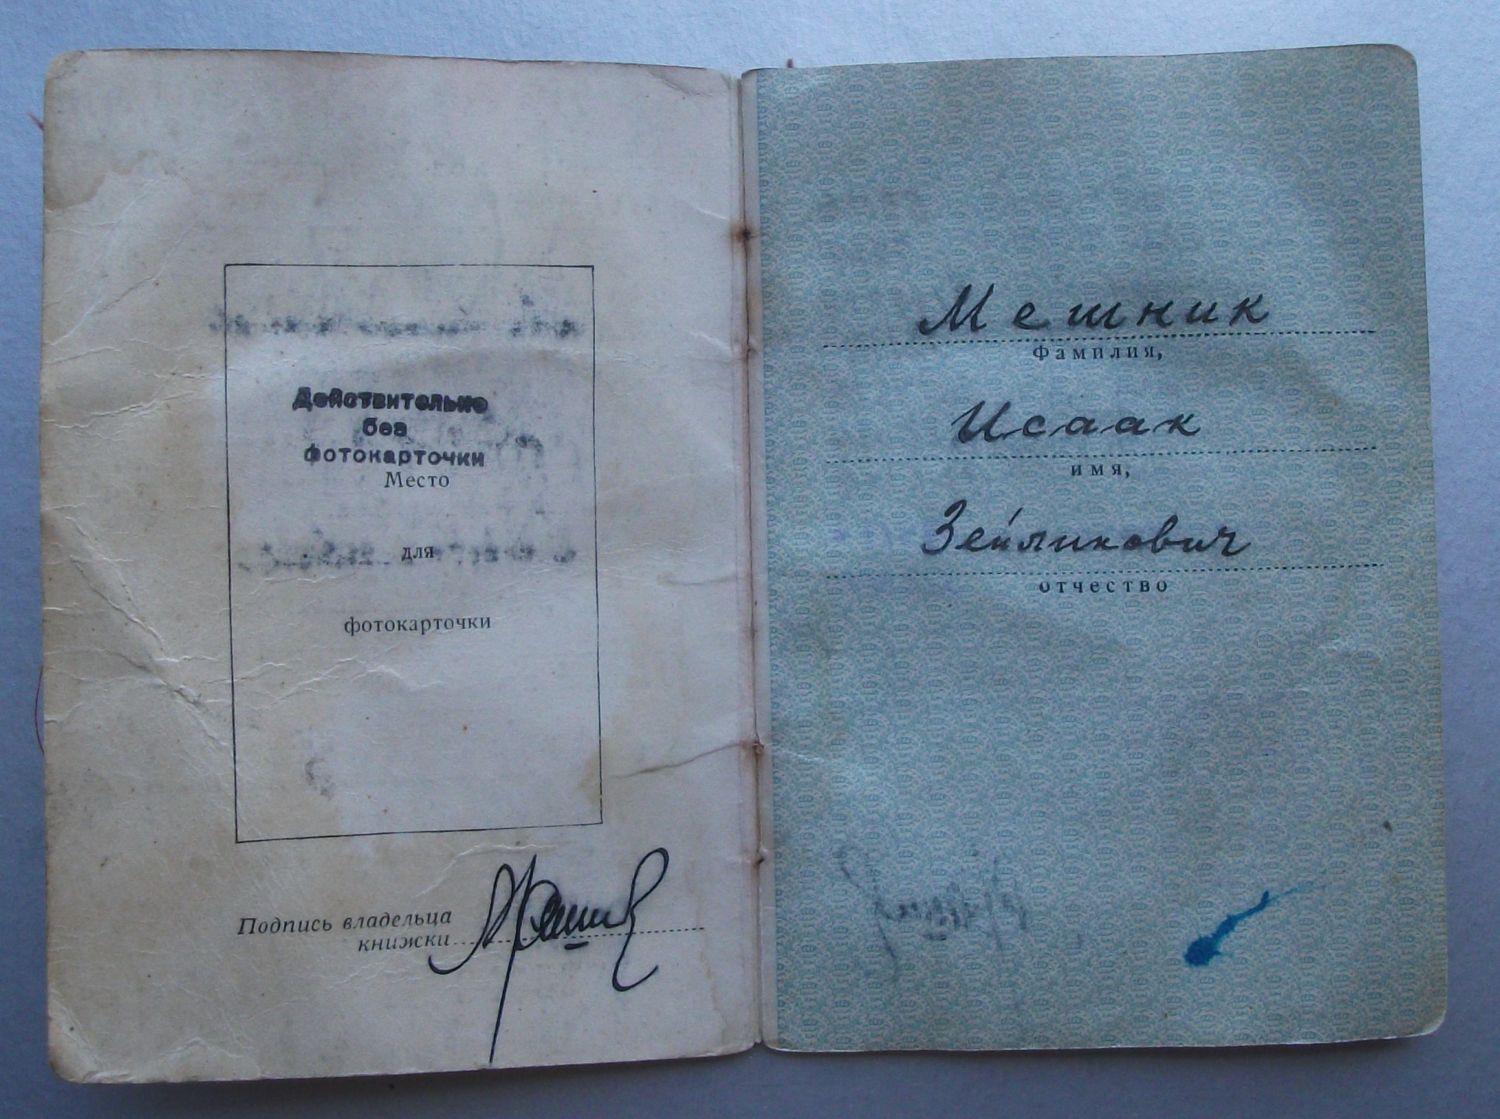 Действительно
без
фотокарточки
Место
для
фотокарточки
Подпись владельца
книжки
Мешник
фамилия,
Исаак
имя,
Зейликович
отчество